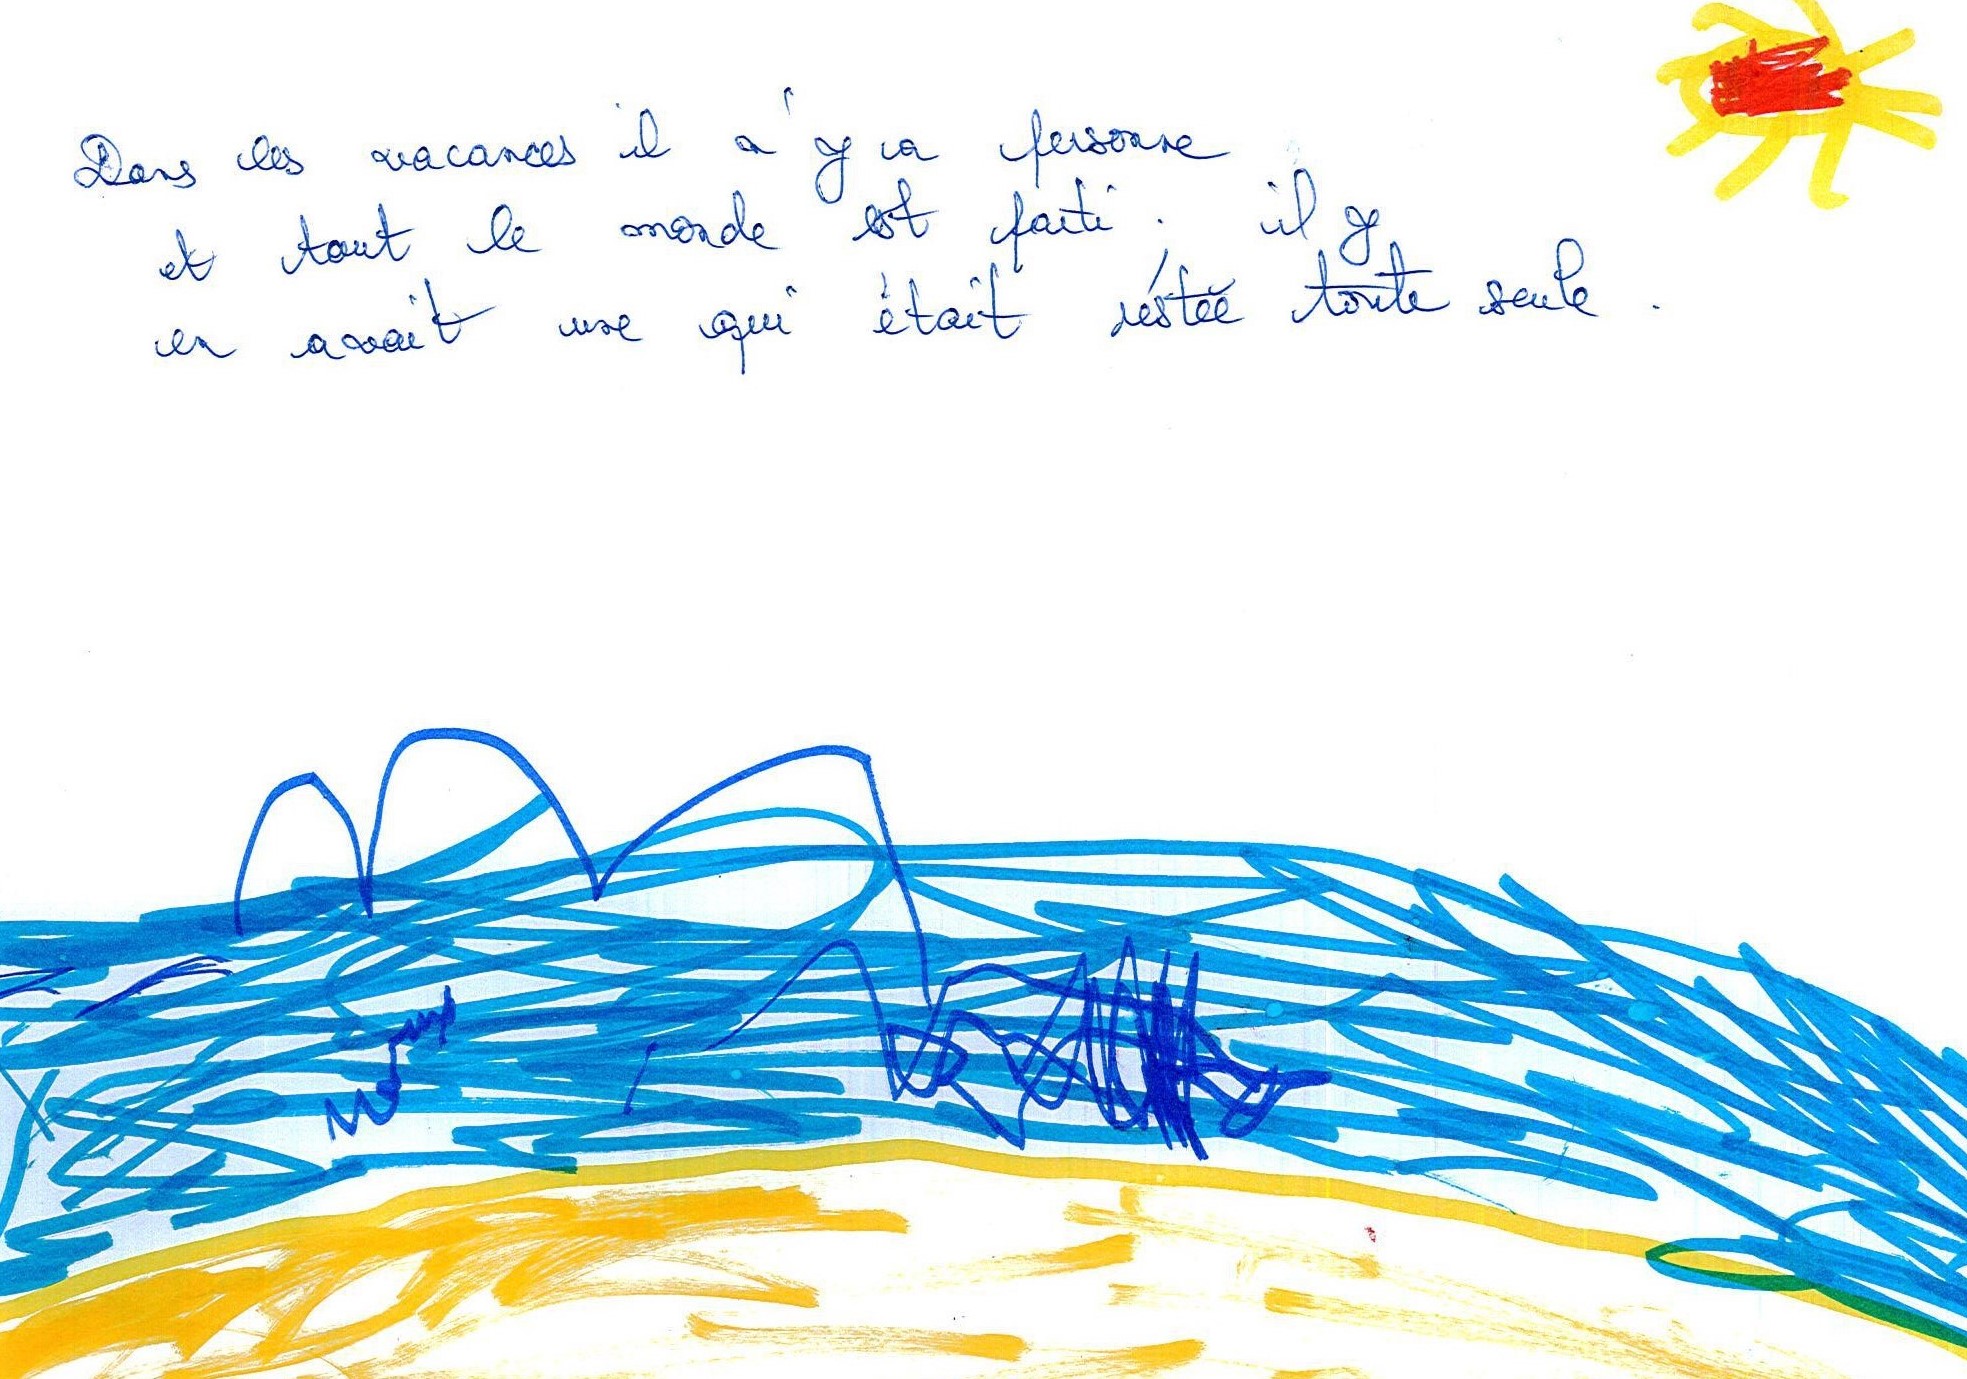 Dans les vacances il n'y a personne
et tout le monde est parti. il y
en avait une qui était réstée toute seule.